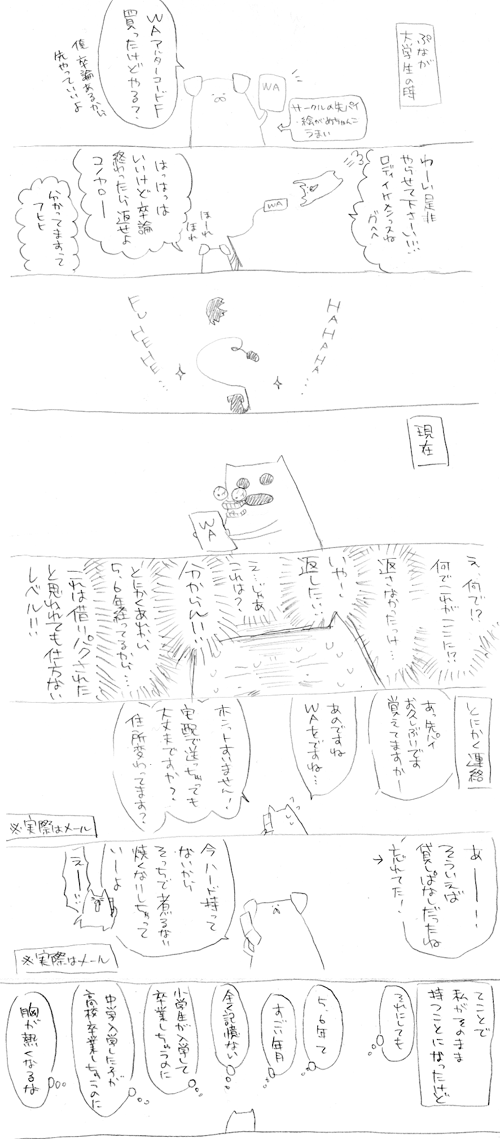 ぷなが
大学生の時
WAアナターコードF
買ったけどやる?
俺卒論あるから
先やっていいよ
WA
サークルの先パイ
・絵がめちゃんこ
うまい
わーい是非
やらせて下さーい!!!
ロディイケメンっスね
グヘヘ
WA
ほーれ
ほれ
はっはっは
いいけど卒論
終わったら返せよ
コノヤロー
分かってますって
フヒヒ
HAHAHA...
FUHEHE...
現在
WA
え、何で!?
何でこれがここに!?
返さなかったっけ…
いや!
返した…
え…じゃあ
これは?
分からん!!
とにかくあれから
5,6年経ってるから…
これは借りパクされた
と思われても仕方ない
レベル!!!
とにかく連絡
あっ先パイ
お久しぶりです
覚えてますかー
あのですね
WAをですね…
ホントすいません!
宅配で送っちゃっても
大丈夫ですか?
住所変わってます?
※実際はメール
あーーー!
そういえば
貸しぱなしだったね
忘れてた!
今ハード持って
ないから
そっちで煮るなり
焼くなりしちゃって
いーよ
えー…
※実際はメール
てことで
私がそのまま
持つことになったけど
それにしても
5,6年て
すごい年月
全く記憶ない
小学生が入学して
卒業しちゃうのに
中学入学した子が
高校卒業しちゃうのに
胸が熱くなるな